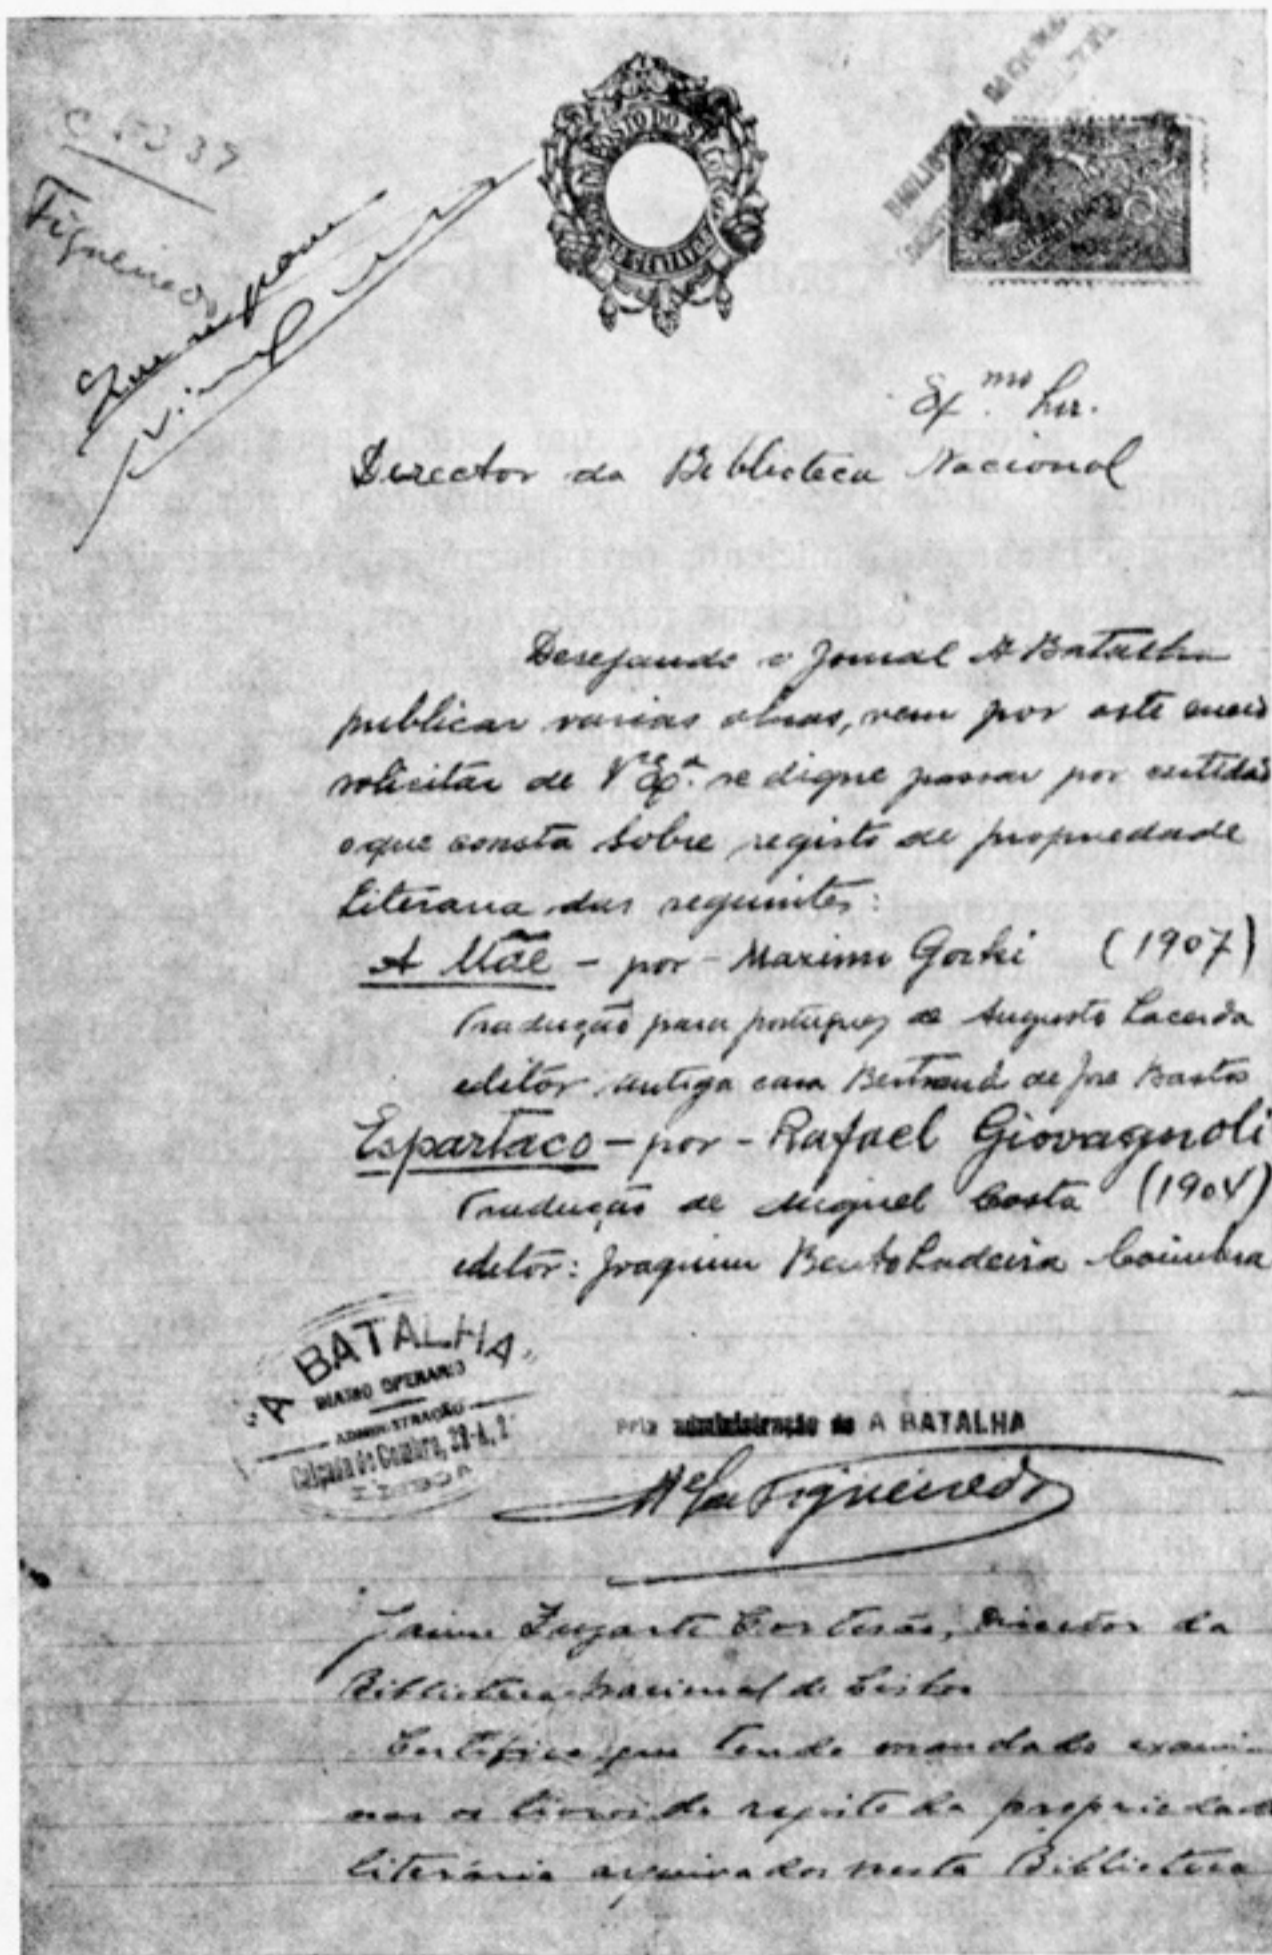 Figueiredo
IMPOSTO DO SELO
Exmo Snr.
Director da Biblioteca Nacional
Desejando o Jornal A Batalha
publicar varias obras, vem por este meio
solicitar de V. Exa. se digne passar por certidão
o que consta sobre registo de propriedade
Literaria das seguintes:
A Mãe - por - Maximo Gorki (1907)
Tradução para portuguez de Augusto Lacerda
editor antiga casa Bertrand de José Bastos
Espartaco - por - Rafael Giovagnoli
Tradução de Miguel Costa (1904)
editor: Joaquim Bento Ladeira Coimbra
"A BATALHA"
DIARIO OPERARIO
ADMINISTRAÇÃO
Calçada do Combro, 38-A, 2º
LISBOA
Pela administração de A BATALHA
Figueiredo
Jaime Zuzarte Cortesão, Director da
Biblioteca Nacional de Lisboa
Certifico que tendo mandado exami-
nar os livros de registo da propriedade
literária arquivados nesta Biblioteca